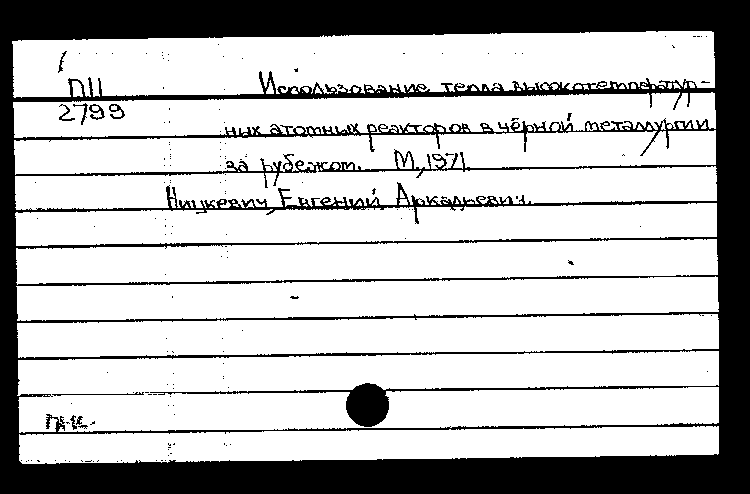 П11 Использование тепла высокотемператур-
2799
ных атомных реакторов в чёрной металлургии
за рубежом. М, 1971.
Ницкевич, Евгений Аркадьевич.